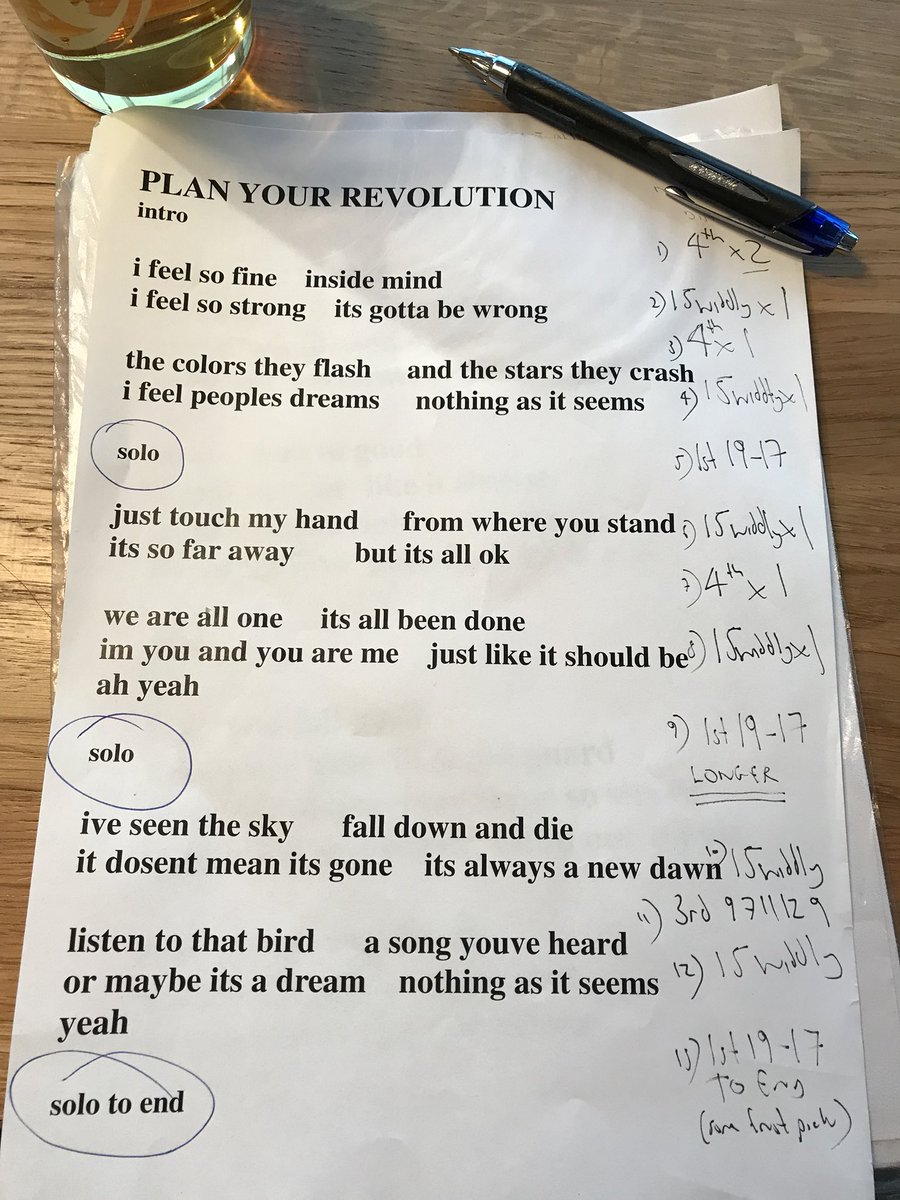 PLAN YOUR REVOLUTION
intro
1) 4th x 2
i feel so fine inside mind
i feel so strong its gotta be wrong
2) 15 widdly x 1
3) 4th x 1
the colors they flash and the stars they crash
i feel peoples dreams nothing as it seems
4) 15 widdly x 1
solo
5) 1st 19-17
just touch my hand from where you stand
6) 15 widdly x 1
its so far away but its all ok
7) 4th x 1
we are all one its all been done
im you and you are me just like it should be
8) 15 widdly x 1
ah yeah
solo
9) 1st 19-17
LONGER
ive seen the sky fall down and die
it dosent mean its gone its always a new dawn
10) 15 widdly
11) 3rd 9711129
listen to that bird a song youve heard
or maybe its a dream nothing as it seems
12) 15 widdly
yeah
13) 1st 19-17
TO END
solo to end
pick)